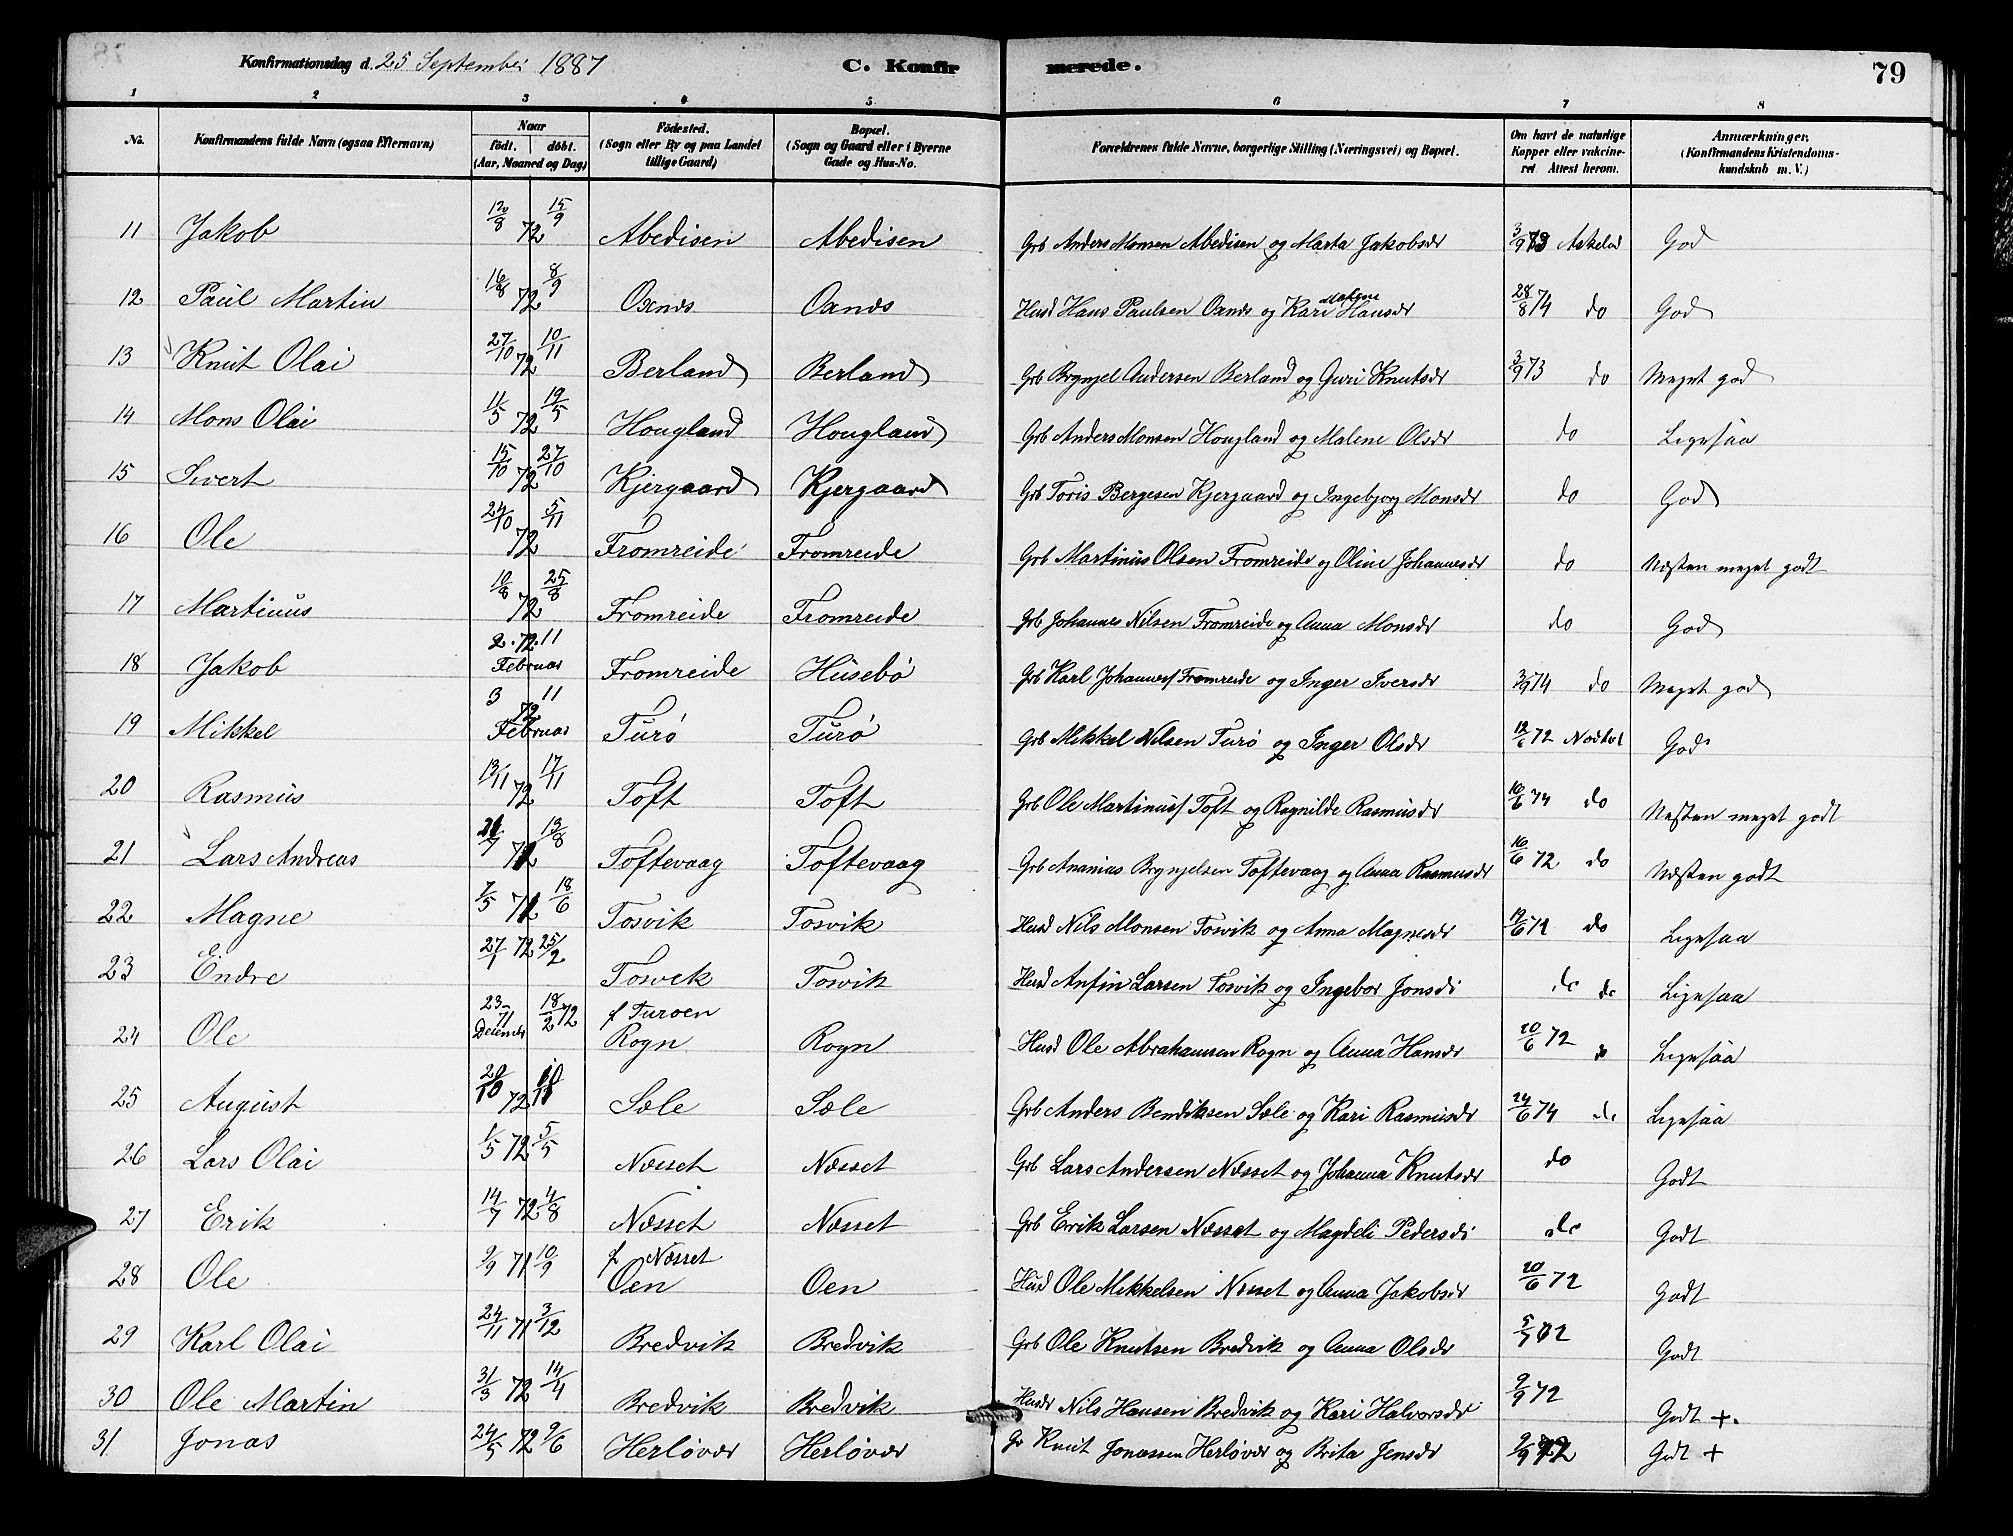 Konfirmationsdag d. 25 September 1887 C. Konfirmerede. 79
1 2 3 4 5 6 7 8
No. Konfirmandens fulde Navn (ogsaa Efternavn) Naar födt. döbt. (Aar, Maaned og Dag) Födested. (Sogn eller By og paa Landet tillige Gaard) Bopæl. (Sogn og Gaard eller i Byerne Gade og Hus-No. Forældrenes fulde Navne, borgerlige Stilling (Næringsvei) og Bopæl. Om havt de naturlige Kopper eller vakcineret Attest herom. Anmærkninger, (Konfirmandens Kristendomskundskab m. V.)
11 Jakob 12/8 72 15/9 Abedisen Abedisen Grb Anders Monsen Abedisen og Marta Jakobsdr 3/9 73 God
12 Paul Martin 16/8 72 8/9 Oxnes Oanes Husd Hans Paulsen Oanes og Kari Malene Hansdr 28/8 74 do God
13 Knut Olai 27/10 72 10/11 Berland Berland Grb Brynjel Andersen Berland og Guri Knutsdr 3/9 73 do Meget god
14 Mons Olai 11/5 72 19/5 Hougland Hougland Grb Anders Monsen Hougland og Malene Olsdr do Ligesaa
15 Sivert 15/10 72 27/10 Kjergaard Kjergaard Grb Toris Bergesen Kjergaard og Ingebjorg Monsdr do God
16 Ole 24/10 72 5/11 Fromreide Fromreide Grb Martinus Olsen Fromreide og Oline Johannesdr do Næsten meget godt
17 Martinus 10/8 72 25/8 Fromreide Fromreide Grb Johannes Nilsen Fromreide og Anna Monsdr do God
18 Jakob 2. 72. 11 Februar Fromreide Husebø Grb Karl Johannes Fromreide og Inger Iversdr 3/9 74 do Meget god
19 Mikkel 3 72 11 Februar Turø Turø Grb Mikkel Nilsen Turø og Inger Olsdr 12/6 72 God
20 Rasmus 13/11 72 17/11 Toft Toft Grb Ole Martinus Toft og Ragnilde Rasmusdr 10/6 74 do Næsten meget godt
21 Lars Andreas 21/7 72 13/8 Toftevaag Toftevaag Grb Ananias Brynjelsen Toftevaag og Anna Rasmusdr 16/6 72 do Næsten godt
22 Magne 7/5 72 18/6 Tosvik Tosvik Husd Nils Monsen Tosvik og Anna Magnesdr 12/6 72 do Ligesaa
23 Endre 27/1 72 25/2 Tosvik Tosvik Husd Anfin Larsen Tosvik og Ingebor Jonsdr do do Ligesaa
24 Ole 23 71 Decembr 18/2 72 f Turoen Rogn Rogn Husd Ole Abrahamsen Rogn og Anna Hansdr 20/6 72 do Ligesaa
25 August 20/10 72 Sæle Sæle Grb Anders Bendiksen Sæle og Kari Rasmusdr 24/6 74 do Ligesaa
26 Lars Olai 1/5 72 5/5 Næsset Næsset Grb Lars Andersen Næsset og Johanna Knutsdr do Godt
27 Erik 14/7 72 4/8 Næsset Næsset Grb Erik Larsen Næsset og Magdeli Pedersdr do Godt
28 Ole 9/9 71 10/9 f Næsset Oen Oen Husd Ole Mikkelsen Næsset og Anna Jakobsdr 20/6 72 Godt
29 Karl Olai 24/11 71 3/12 Bredvik Bredvik Grb Ole Knutsen Bredvik og Anna Olsdr 5/7 72 Godt
30 Ole Martin 31/3 72 14/4 Bredvik Bredvik Husd Nils Hansen Bredvik og Kari Halvorsdr 9/9 72 Godt +.
31 Jonas 24/5 72 9/6 Herløvær Herløvær Gr Knut Jonassen Herløvær og Brita Jensdr 9/9 72 Godt +